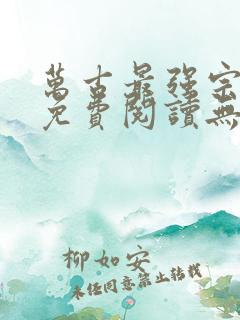 萬古最强宗
免費閱讀無
柳如安
未经同意禁止转载